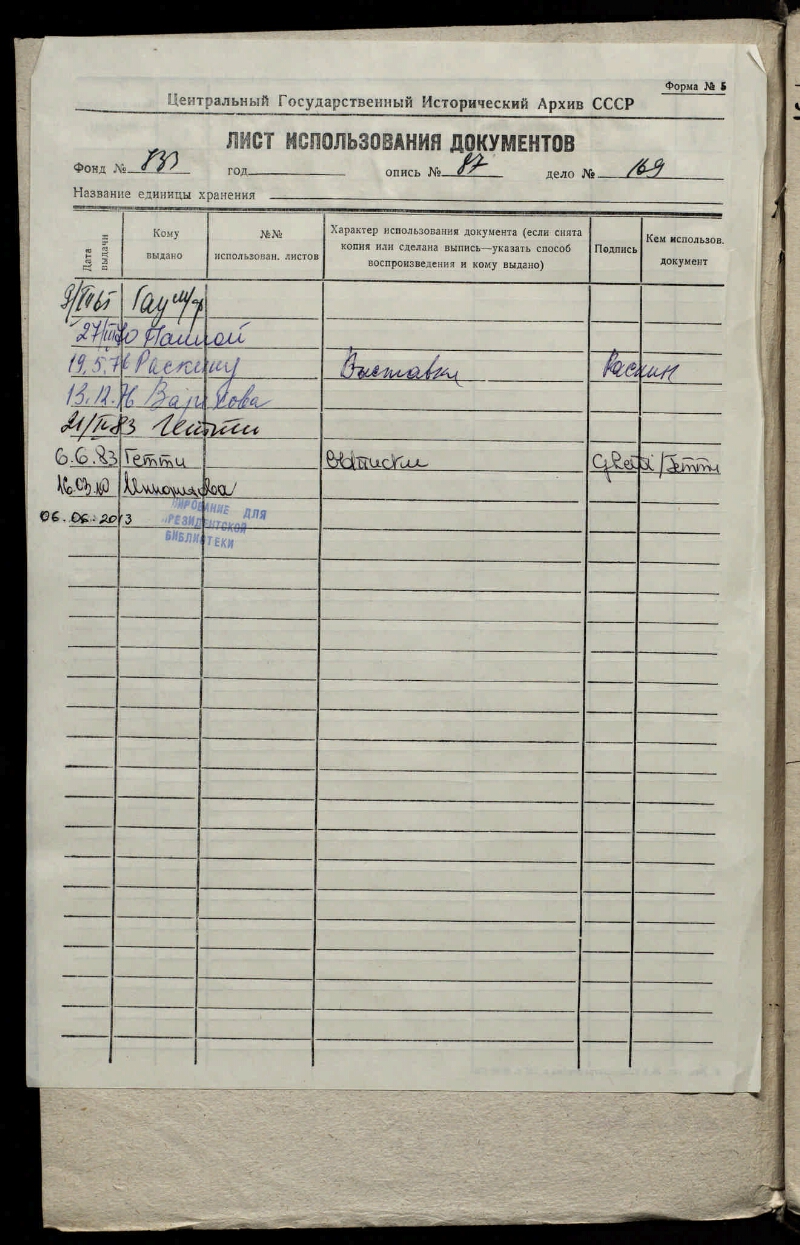 Форма № 5
Центральный Государственный Исторический Архив СССР
ЛИСТ ИСПОЛЬЗОВАНИЯ ДОКУМЕНТОВ
Фонд № 833 год опись № 87 дело № 169
Название единицы хранения
Дата выдачи
Кому выдано
№№ использован. листов
Характер использования документа (если снята копия или сделана выпись—указать способ воспроизведения и кому выдано)
Подпись
Кем использов. документ
19.5.76 Раскину Выставка Раскин
13.12.76
21/IV-83
6.6.83 Гетти выписки Гетти
16.03.10
06.06.2013 ИРОВАНИЕ ДЛЯ
РЕЗИДЕНТСКОЙ
БИБЛИОТЕКИ